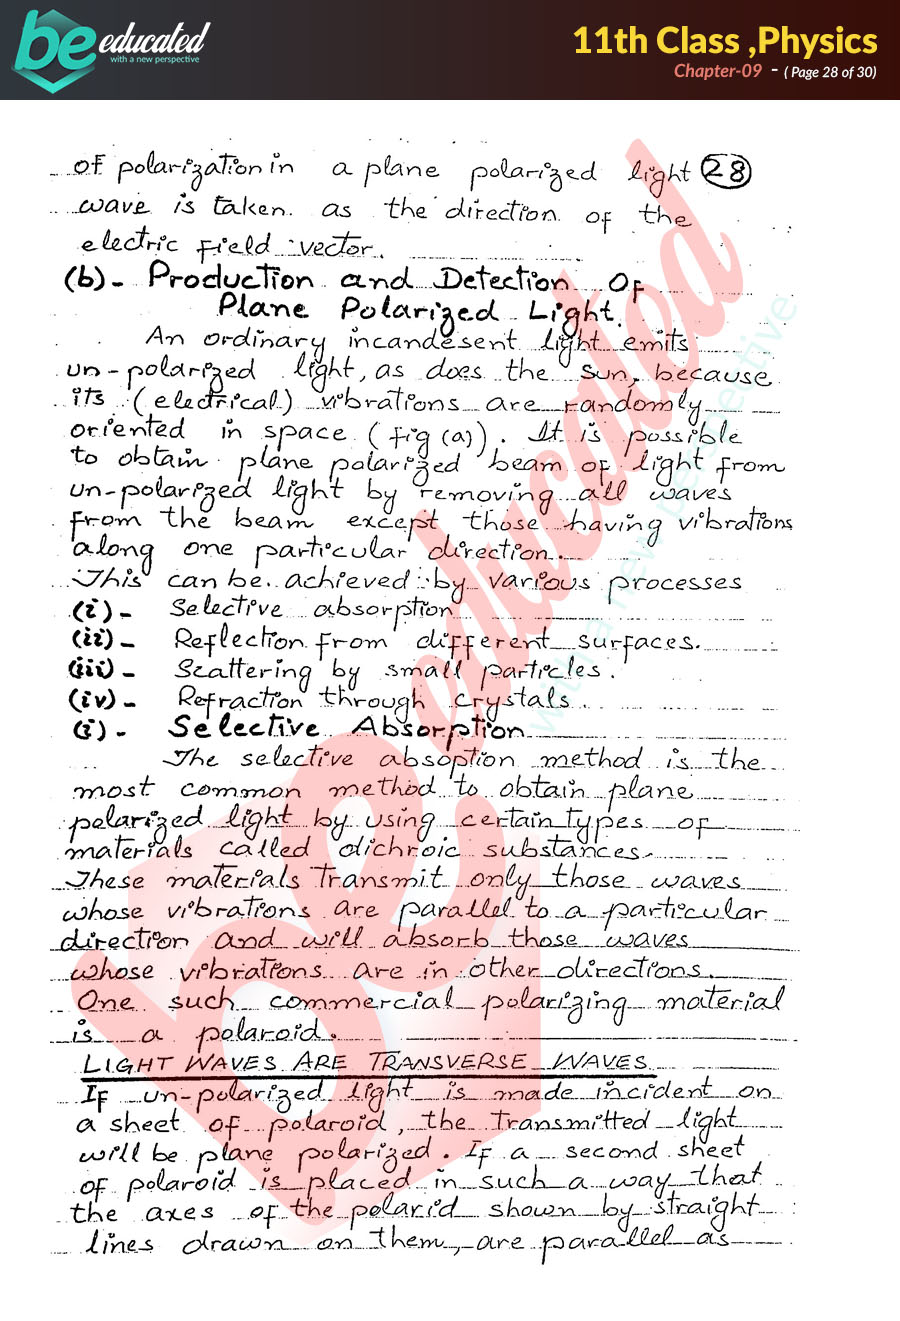 be educated
with a new perspective
11th Class ,Physics
Chapter-09 - ( Page 28 of 30)
of polarization in a plane polarized light 28
wave is taken as the direction of the
electric field vector.
(b)- Production and Detection Of
Plane Polarized Light.
An ordinary incandesent light emits
un-polarized light, as does the sun, because
its (electrical) vibrations are randomly
oriented in space (fig (a)). It is possible
to obtain plane polarized beam of light from
un-polarized light by removing all waves
from the beam except those having vibrations
along one particular direction.
This can be achieved by various processes
(i)- Selective absorption
(ii)- Reflection from different surfaces.
(iii)- Scattering by small particles.
(iv)- Refraction through crystals.
(i)- Selective Absorption
The selective absoption method is the
most common method to obtain plane
polarized light by using certain types of
materials called dichroic substances.
These materials transmit only those waves
whose vibrations are parallel to a particular
direction and will absorb those waves
whose vibrations are in other directions.
One such commercial polarizing material
is a polaroid.
LIGHT WAVES ARE TRANSVERSE WAVES
If un-polarized light is made incident on
a sheet of polaroid, the transmitted light
will be plane polarized. If a second sheet
of polaroid is placed in such a way that
the axes of the polarid shown by straight
lines drawn on them, are parallel as
be educated
with a new perspective